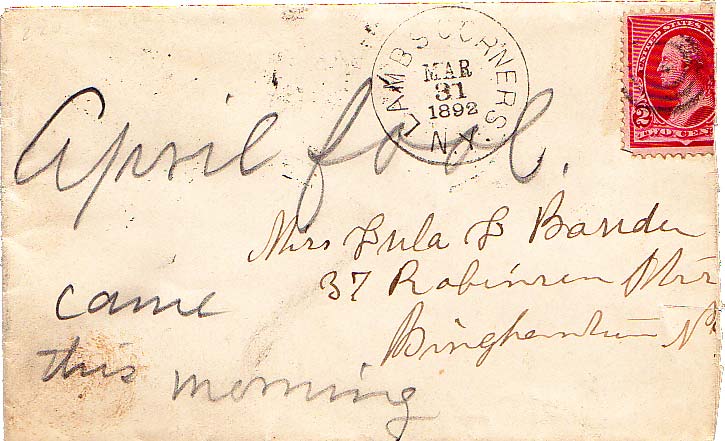 LAMBS CORNERS
MAR
31
1892
N.Y.
UNITED STATES
2
TWO CENT
April fool.
Mrs Lula L
37 Robinson
Binghamton N
came
this morning